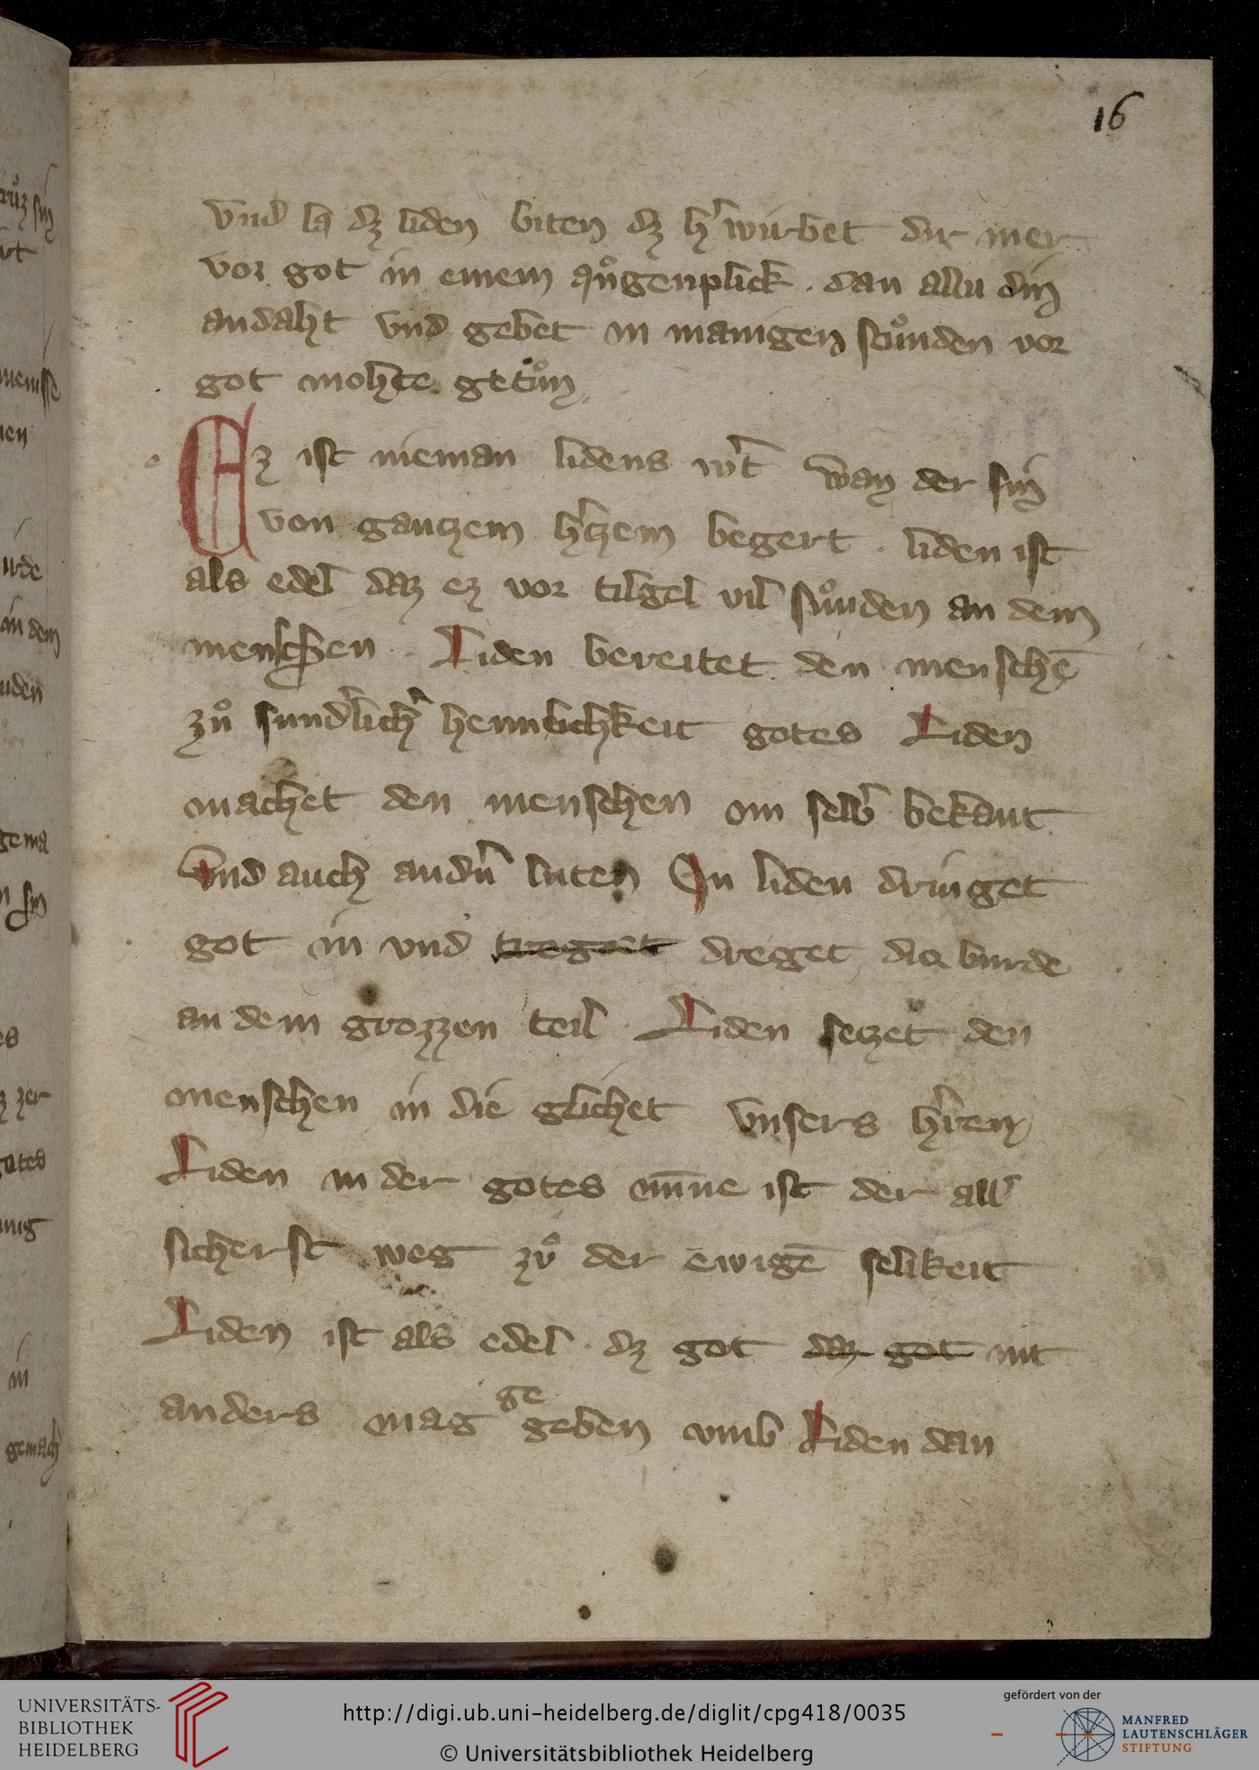 16
vnd la dz liden biten dz h͛ wurbet dir mer
vor got in einem aͦugenplick . dan allu din
andaht vnd gebet in manigen stuͦnden vor
got mohte getuͦn
Ez ist nieman lidens w͛t wan der sin
von gantzem h͛tzem begert . liden ist
als edel daz ez vor tilgel vil suͦnden an dem
menschen . Liden bereitet den menschē
zuͦ sund͛lich͛ heimlichkeit gotes Liden
machet den menschen im selb͛ bekant
vnd auch andn͛ luten In liden dringet
got in vnd treget dreget die burde
an dem grozzen teil . Liden setzet den
menschen in die glichet vnsers h͛ren
Liden in der gotes mīne ist der all͛
sicherst weg zuͦ der ewigē selikeit
Liden ist als edel . dz got daz got nit
anders mag ge geben vmb Liden dan
UNIVERSITÄTS-
BIBLIOTHEK
HEIDELBERG
http://digi.ub.uni-heidelberg.de/diglit/cpg418/0035
© Universitätsbibliothek Heidelberg
gefördert von der
MANFRED
LAUTENSCHLÄGER
STIFTUNG